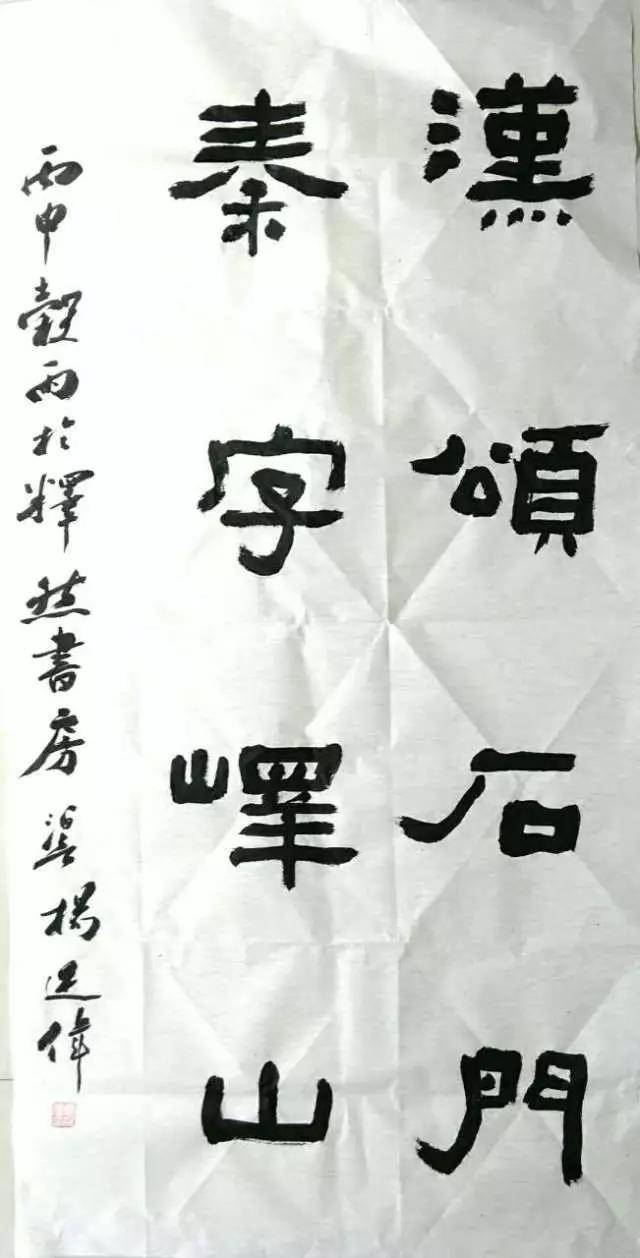 漢頌石門
秦字嶧山
丙申穀雨於釋然書房 楊延偉